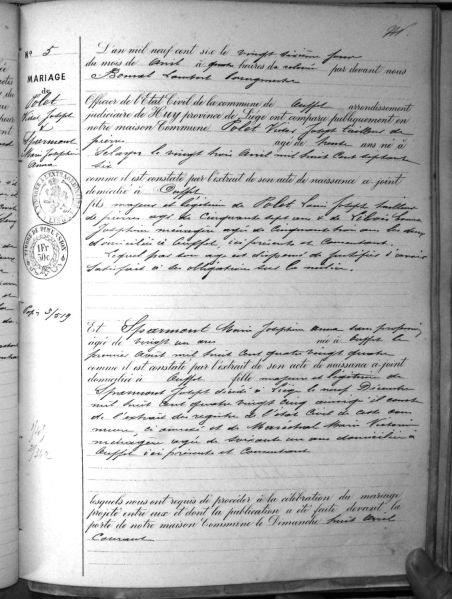 N° 5
MARIAGE
de
Polet
Victor Joseph
&
Sparmont
Marie Josephine
Anna
L'an mil neuf cent six le vingt sixième jour
du mois de Avril à quatre heures de relevée par devant nous
Bonnet Lambert bourgmestre
Officier de l'Etat Civil de la commune de Ouffet arrondissement
judiciaire de Huy province de Liège ont comparu publiquement en
notre maison Commune Polet Victor Joseph tailleur de
pierres âgé de trente ans né à
le vingt trois Avril mil huit cent septante
six
comme il est constaté par l'extrait de son acte de naissance ci joint
domicilié à Ouffet
fils majeur et légitime de Polet Louis Joseph tailleur
de pierres âgé de Cinquante sept ans & de
Joséphine ménagère âgée de Cinquante trois ans les deux
domiciliés à Ouffet, ici présents et Consentant.
Lequel par son âge est dispensé de justifier d'avoir
satisfait à ses obligations sur la milice.
Et Sparmont Marie Josephine Anna sans profession
âgée de vingt un ans née à Ouffet le
premier Avril mil huit Cent quatre vingt quatre
comme il est constaté par l'extrait de son acte de naissance ci-joint
domiciliée à Ouffet fille majeure et légitime de
Sparmont Joseph décédé à Liège le neuf Décembre
mil huit cent quatre vingt cinq ainsi qu'il conste
de l'extrait du registre de l'état Civil de cette com
mune, ci annexé et de Maréchal Marie Victoire
ménagère âgée de soixante un ans domiciliée à
Ouffet ici présente et Consentant
lesquels nous ont requis de procéder à la célébration du mariage
projeté entre eux et dont la publication a été faite devant la
porte de notre maison Commune le Dimanche huit Avril
Courant